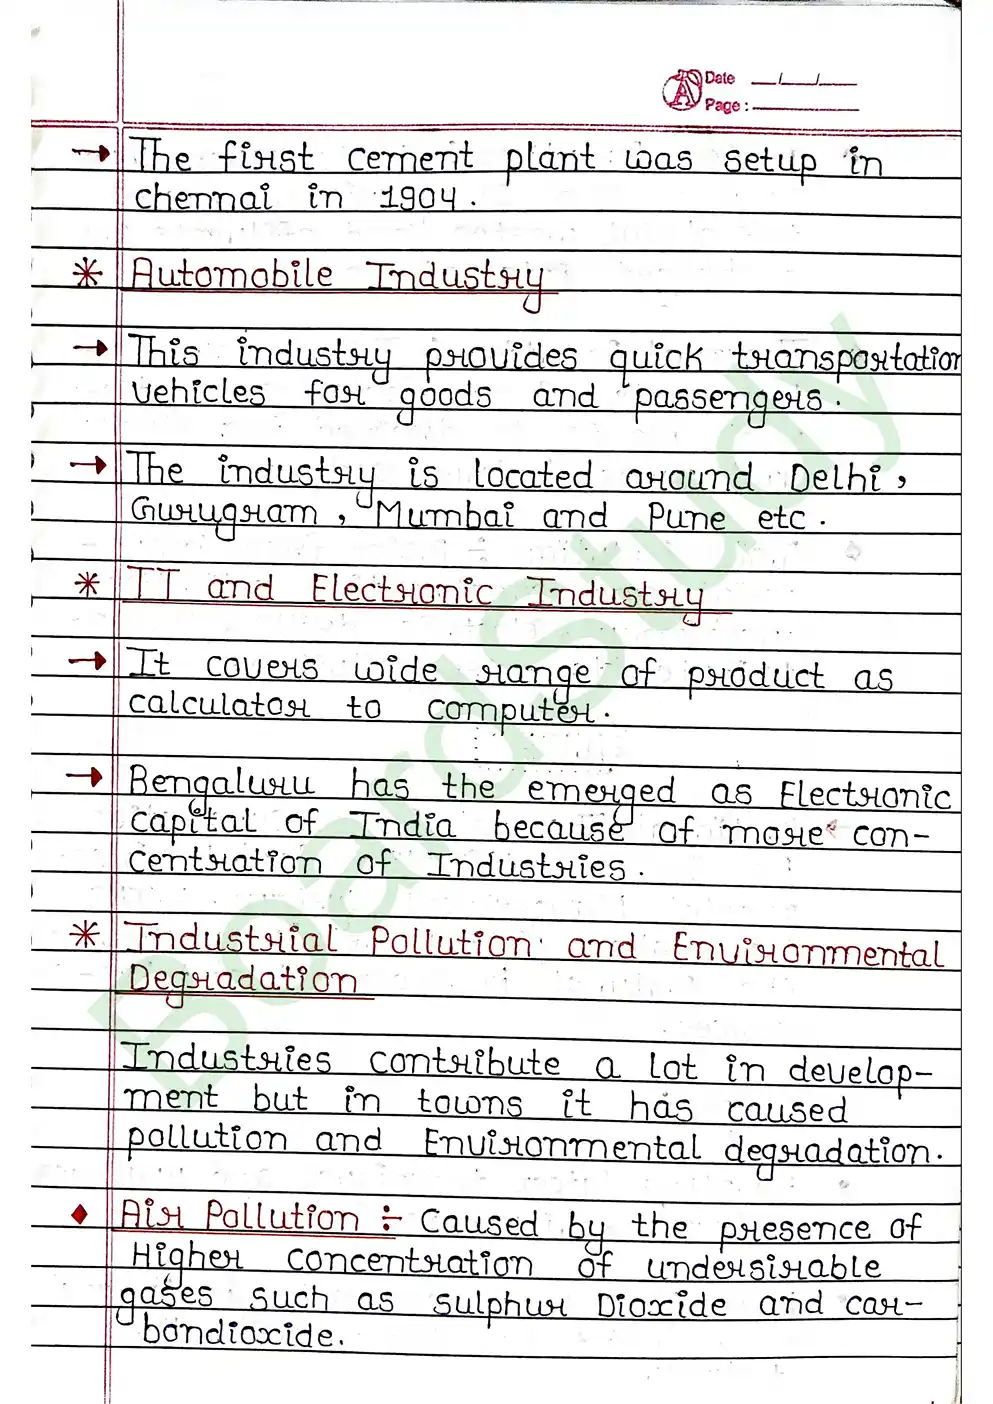 Date __/__/__
Page: ______
→ The first cement plant was setup in
chennai in 1904.
* Automobile Industry
→ This industry provides quick transportation
vehicles for goods and passengers.
→ The industry is located around Delhi,
Gurugram, Mumbai and Pune etc.
* IT and Electronic Industry
→ It covers wide range of product as
calculator to computer.
→ Bengaluru has the emerged as Electronic
capital of India because of more con-
centration of Industries.
* Industrial Pollution and Environmental
Degradation
Industries contribute a lot in develop-
ment but in towns it has caused
pollution and Environmental degradation.
♦ Air Pollution :- Caused by the presence of
Higher concentration of undersirable
gases such as sulphur Dioxide and car-
bondioxide.
BoardStudy